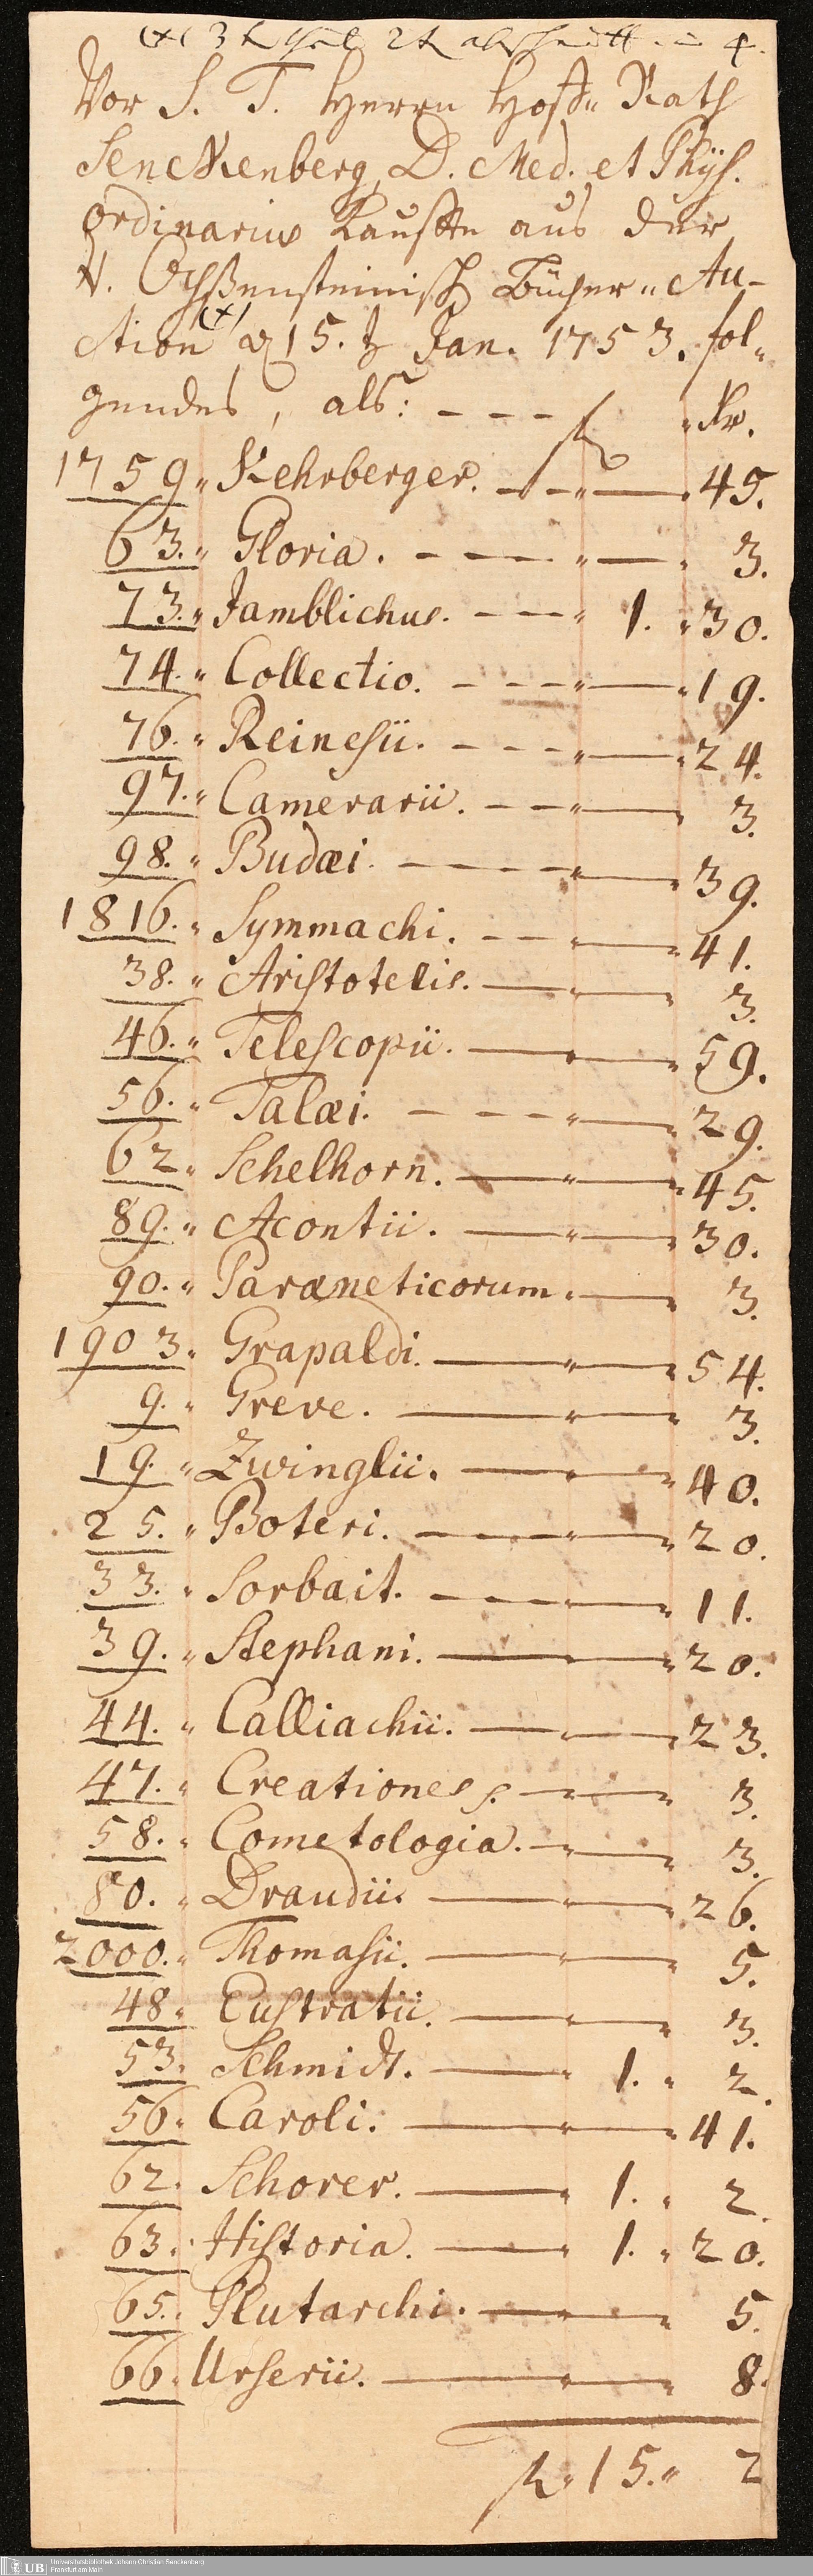 (+) 3 ter Theil 2t abschnitt. in 4.
Vor S. T. Herrn Hoff„ Rath
Senckenberg, D. Med. et Phÿs.
Ordinarius kauffte aus der
v. Ochßensteinisch Bücher„ Au-
ction (+) 15. Jan. 1753. fol„
gendes, als: - - - f „ Kr.
1759„ Kehrberger. - - „ — „ 45.
63.„ Gloria. - - - - „ — „ 3.
73.„ Jamblichus. - - - „ 1. „ 30.
74.„ Collectio. - - - - „ — „ 19.
76.„ Reinesii. - - - - „ — „ 24.
97.„ Camerarii. - - - „ — „ 3.
98.„ Budæi. - - - - - „ — „ 39.
1816.„ Symmachi. - - - „ — „ 41.
38.„ Aristotelis. — „ — „ 3.
46.„ Telescopii. — „ — „ 59.
56.„ Talæi. - - - - „ — „ 29.
62„ Schelhorn. — „ — „ 45.
89.„ Acontii. — „ — „ 30.
90.„ Paræneticorum. — „ 3.
1903„ Grapaldi. — „ — „ 54.
9.„ Greve. — „ — „ 3.
19.„ Zwinglii. — „ — „ 40.
25.„ Boteri. — „ — „ 20.
33.„ Sorbait. — „ — „ 11.
39.„ Stephani. — „ — „ 20.
44.„ Calliachii. — „ — „ 23.
47.„ Creationes — „ — „ 3.
58.„ Cometologia. - „ — „ 3.
80.„ Draudii. — „ — „ 26.
2000.„ Thomasii. — „ — „ 5.
48„ Eustratii. — „ — „ 3.
53„ Schmidt. — „ 1. „ 2.
56„ Caroli. — „ — „ 41.
62„ Schorer. — „ 1. „ 2.
63„ Historia. — „ 1. „ 20.
65.„ Plutarchi. — „ — „ 5.
66„ Urserii. — „ — „ 8.
f„ 15.„ 2
UB Universitätsbibliothek Johann Christian Senckenberg
Frankfurt am Main